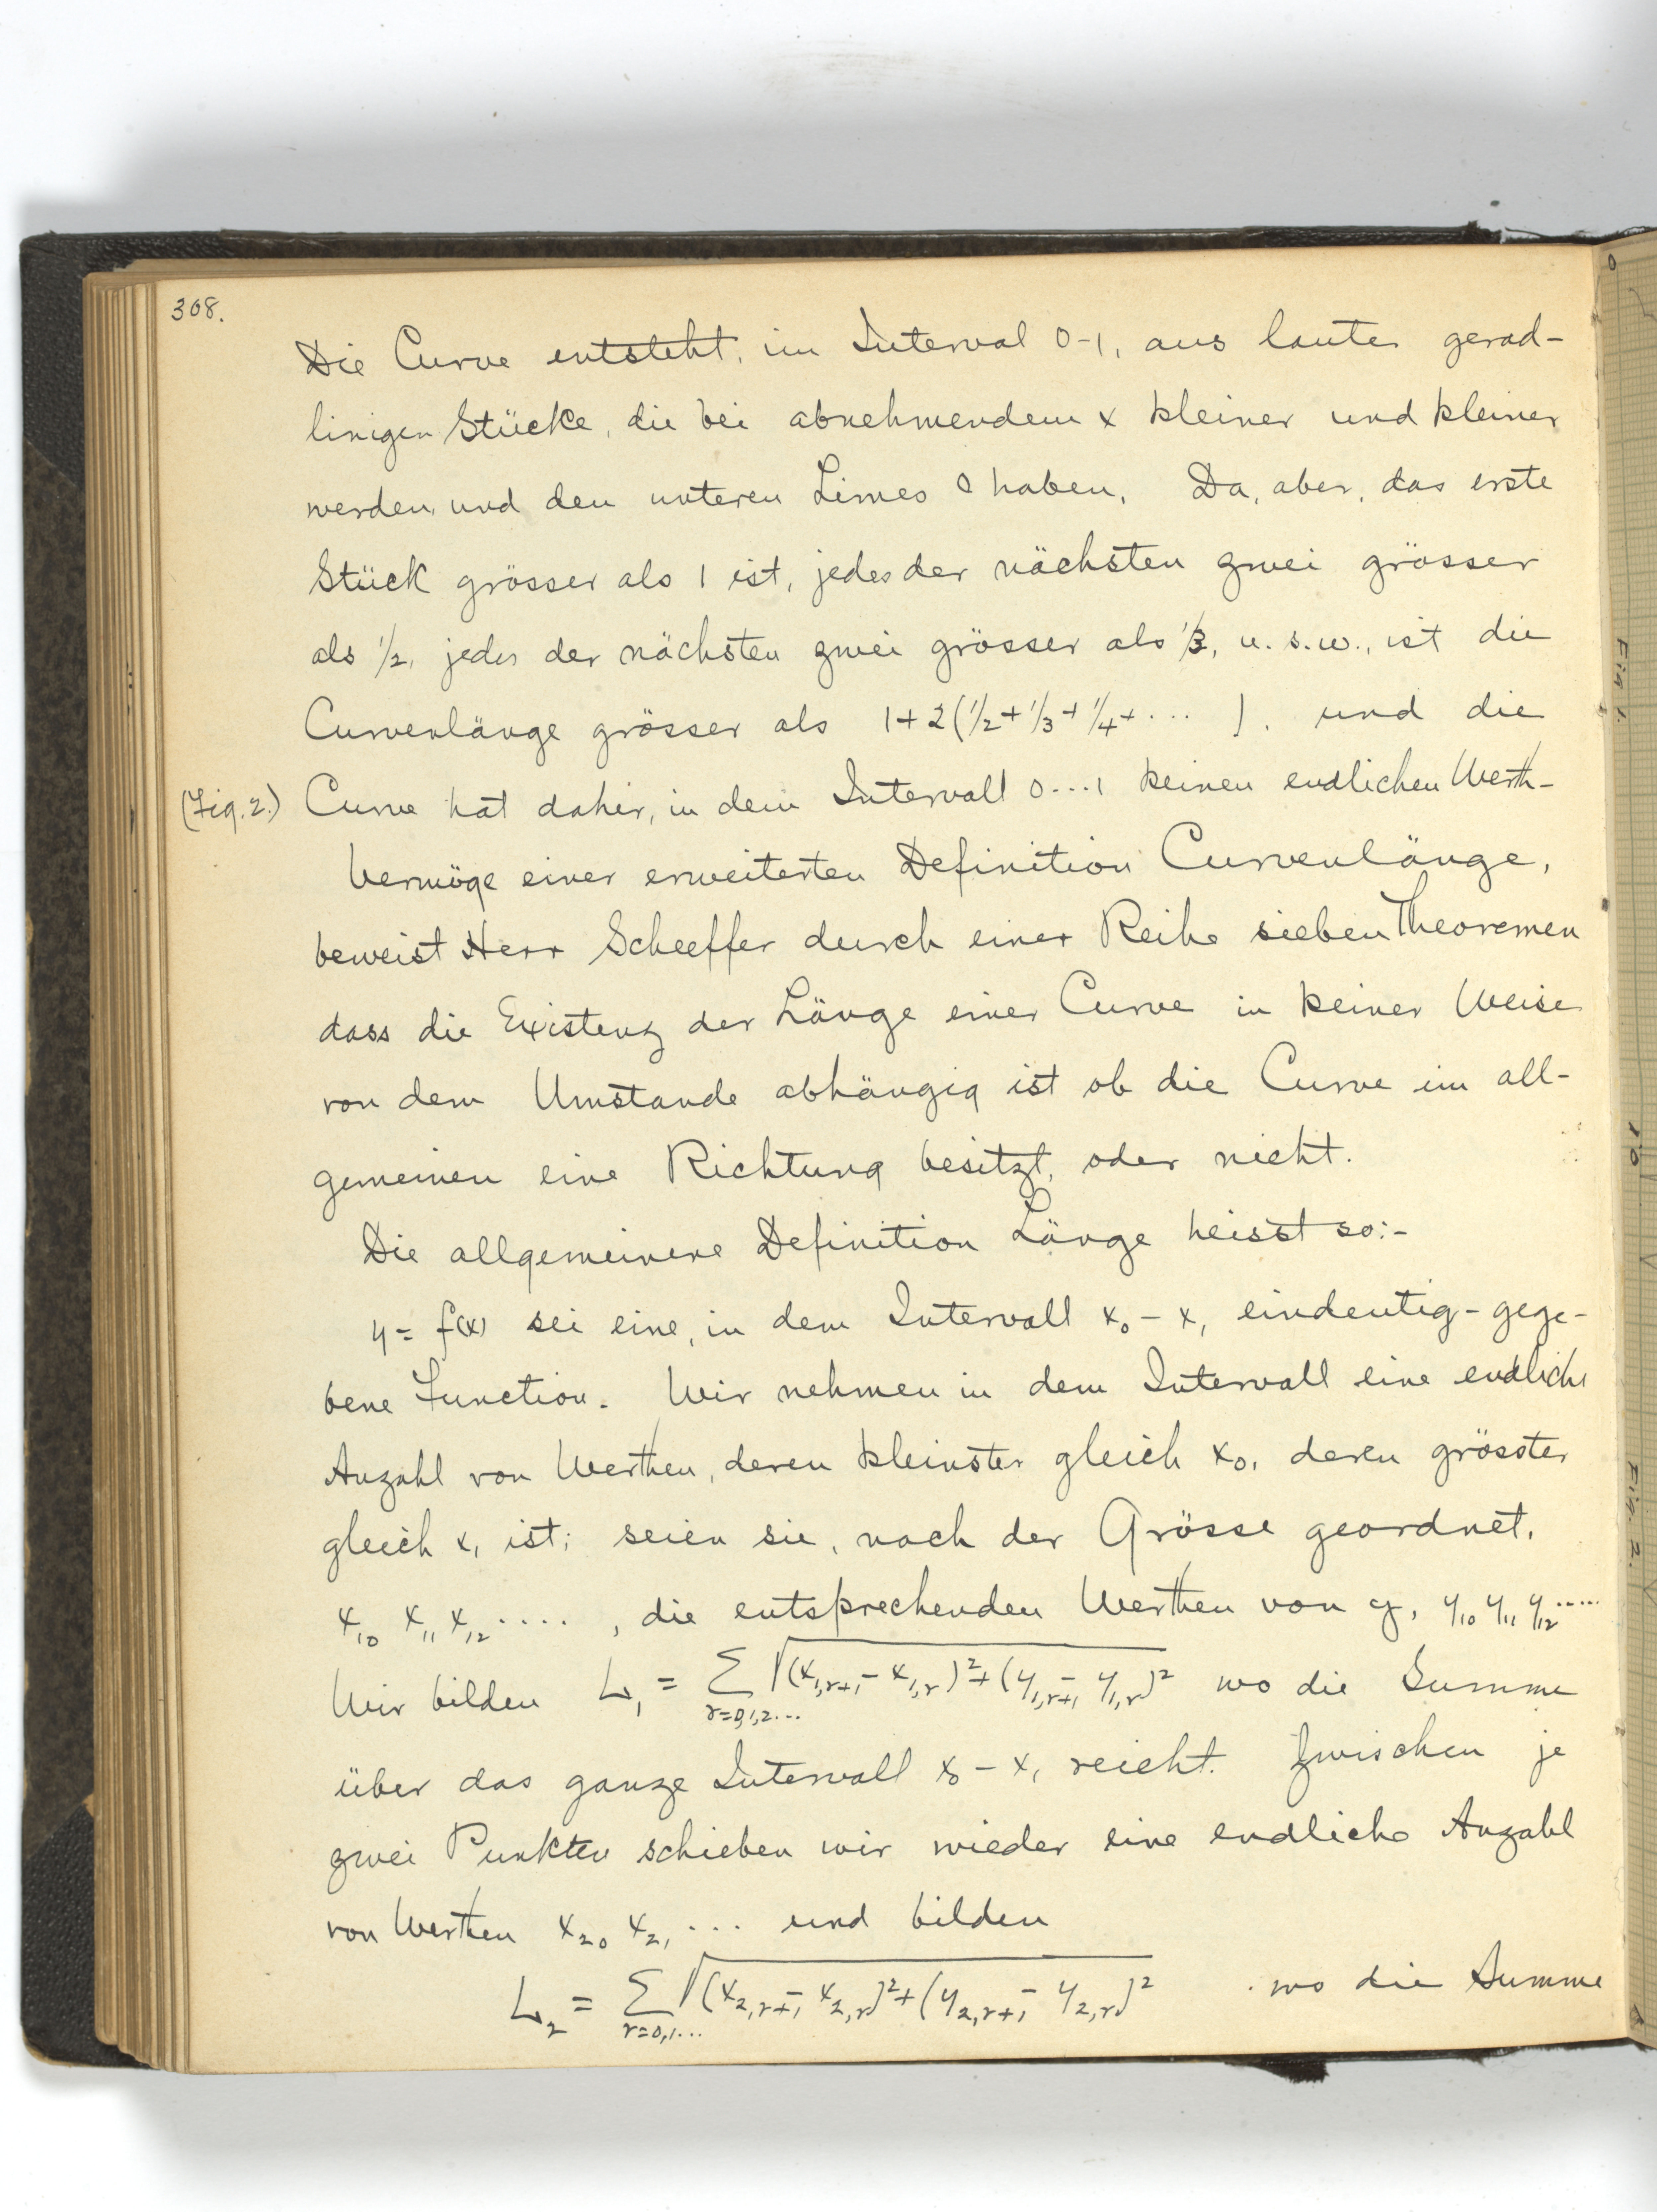 308.
Die Curve entsteht, im Interval 0-1, aus lauter gerad-
linigen Stücke, die bei abnehmendem x kleiner und kleiner
werden, und den unteren Limes 0 haben. Da, aber, das erste
Stück grösser als 1 ist, jedes der nächsten zwei grösser
als 1/2, jedes der nächsten zwei grösser als 1/3, u. s. w., ist die
Curvenlänge grösser als 1+2(1/2+1/3+1/4+... ). und die
(Fig. 2.) Curve hat daher, in dem Intervall 0...1 keinen endlichen Werth-
Vermöge einer erweiterten Definition Curvenlänge,
beweist Herr Scheeffer durch einer Reihe sieben Theoremen
dass die Existenz der Länge einer Curve in keiner Weise
von dem Umstande abhängig ist ob die Curve im all-
gemeinen eine Richtung besitzt, oder nicht.
Die allgemeinere Definition Länge heisst so:-
y = f(x) sei eine, in dem Intervall x₀ - x₁ eindeutig-gege-
bene Function. Wir nehmen in dem Intervall eine endliche
Anzahl von Werthen, deren kleinster gleich x₀, deren grösster
gleich x₁ ist; seien sie, nach der Grösse geordnet,
x₁₀ x₁₁ x₁₂ ...., die entsprechenden Werthen von y, y₁₀ y₁₁ y₁₂.....
Wir bilden L₁ = Σ √(x₁,ᵣ₊₁ - x₁,ᵣ)² + (y₁,ᵣ₊₁ - y₁,ᵣ)² wo die Summe
r=0,1,2...
über das ganze Intervall x₀ - x₁ reicht. Zwischen je
zwei Punkten schieben wir wieder eine endliche Anzahl
von Werthen x₂₀ x₂₁ ... und bilden
L₂ = Σ √(x₂,ᵣ₊₁ - x₂,ᵣ)² + (y₂,ᵣ₊₁ - y₂,ᵣ)² wo die Summe
r=0,1...
Fig. 1.
Fig. 2.